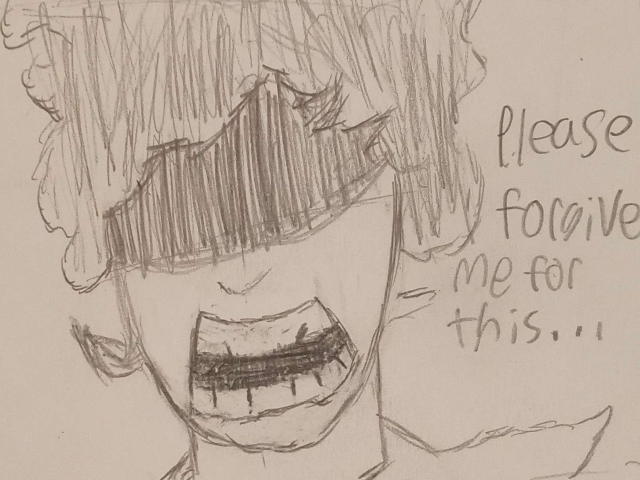 Please
forgive
me for
this...